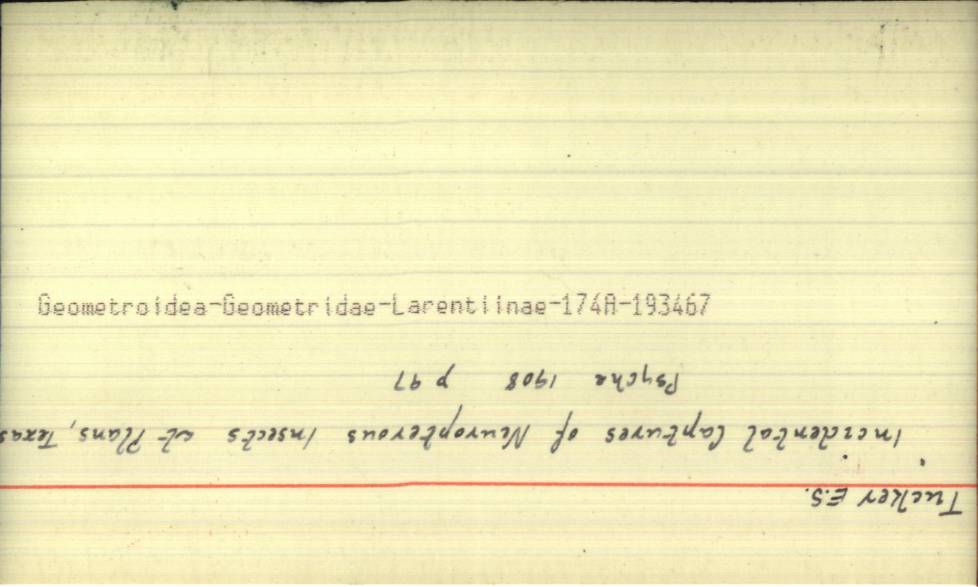 Geometroidea-Geometridae-Larentiinae-174A-193467
Tucker E.S.
Incidental Captures of Neuropterous Insects at Plans, Texas
Psyche 1908 p 97